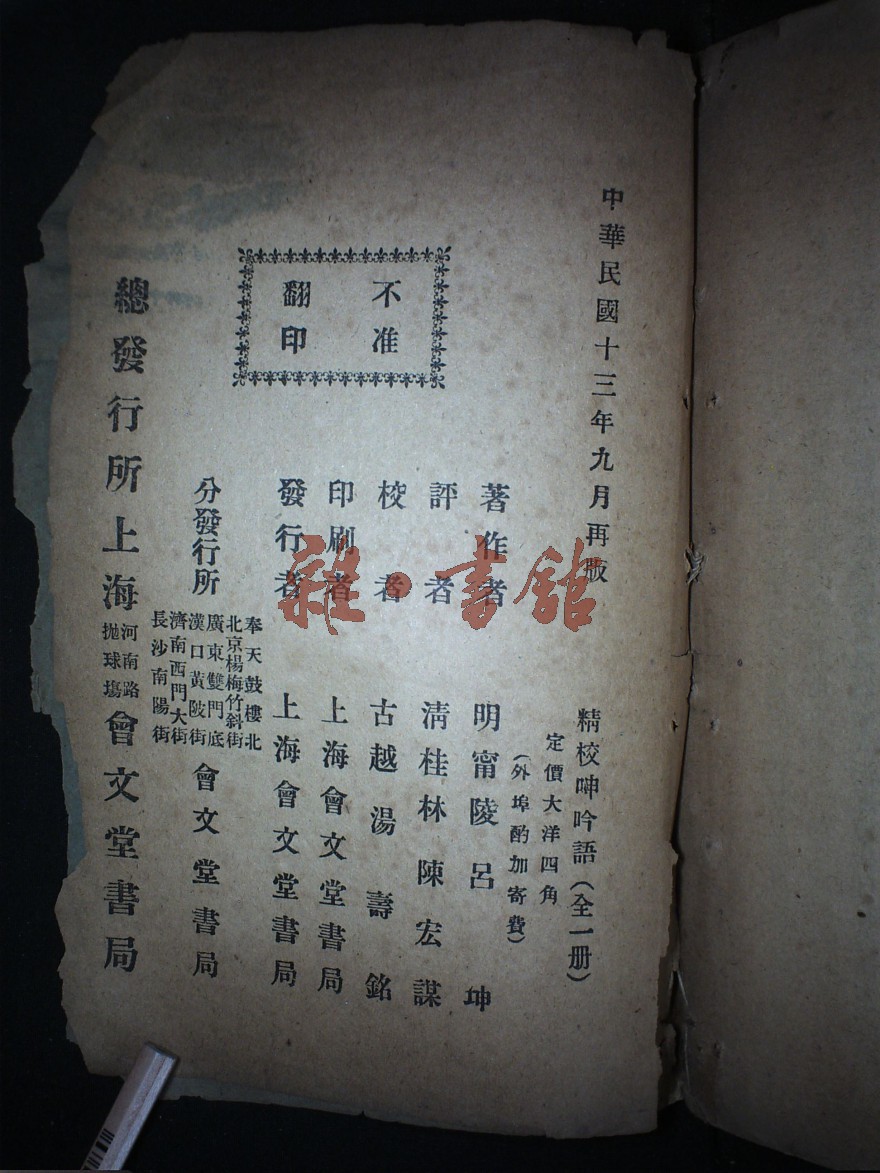 中華民國十三年九月再版
精校呻吟語(全一册)
定價大洋四角
(外埠酌加寄費)
著作者 明甯陵呂坤
評者 清桂林陳宏謀
校者 古越湯壽銘
印刷者 上海會文堂書局
發行者 上海會文堂書局
不准
翻印
分發行所
奉天鼓樓北
北京楊梅竹斜街
廣東雙門底
漢口黃陂街
濟南西門大街
長沙南陽街
會文堂書局
總發行所上海
河南路
拋球場
會文堂書局
雜·書館